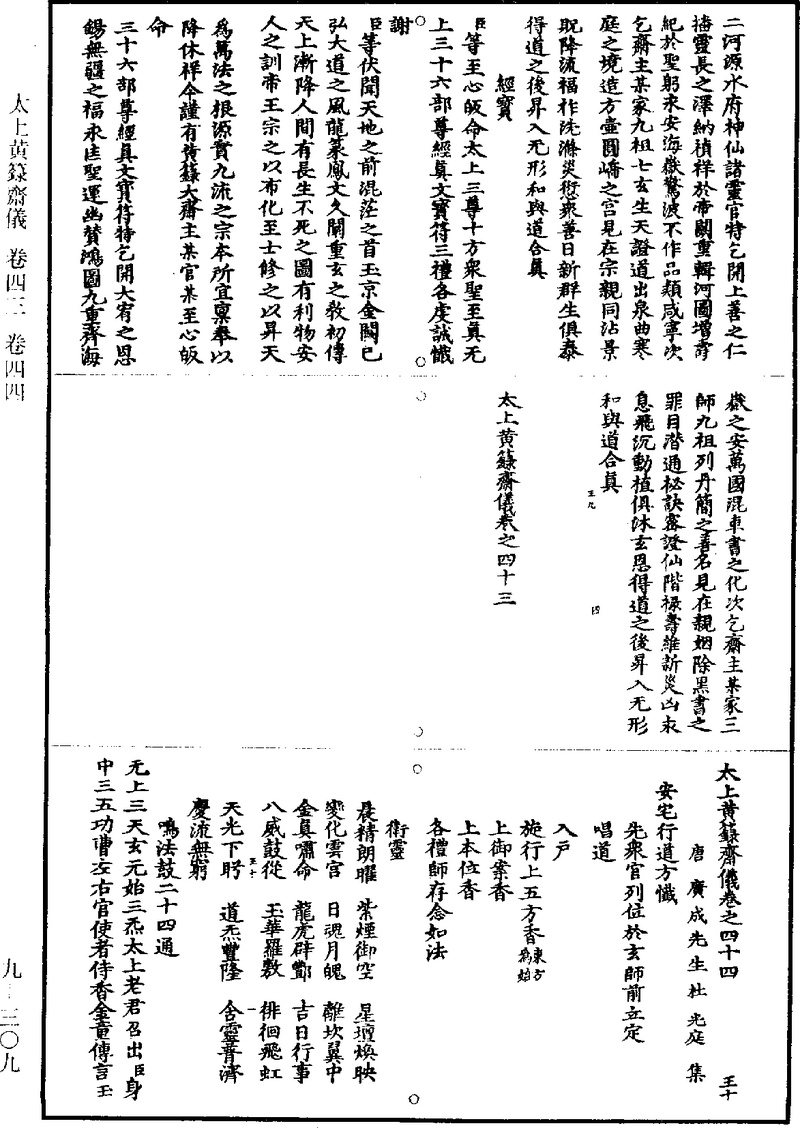 二河源水府神仙諸靈官特乞開上善之仁
播靈長之澤納禎祥於帝闕重輯河圖增壽
紀於聖躬永安海嶽驚波不作品類咸寧次
乞齋主某家九祖七玄生天證道出泉曲寒
庭之境造方壺圓嶠之宮見在宗親同沾景
貺降流福祚洗滌災愆衆善日新群生俱泰
得道之後昇入无形和與道合眞
經寶
臣等至心皈命太上三尊十方衆聖至眞无
上三十六部尊經眞文寶符三禮各虔誠懺
謝
臣等伏聞天地之前混茫之首玉京金闕已
弘大道之風龍篆鳳文久闡重玄之敎初傳
天上漸降人間有長生不死之圖有利物安
人之訓帝王宗之以布化至士修之以昇天
爲萬法之根源實九流之宗本所宜禀奉以
降休祥今謹有黃籙大齋主某官某至心皈
命
三十六部尊經眞文寶符特乞開大宥之恩
錫無疆之福永匡聖運幽贊鴻圖九重齊海
嶽之安萬國混車書之化次乞齋主某家三
師九祖列丹簡之善名見在親姻除黑書之
罪目潜通秘訣密證仙階禄壽維新災凶永
息飛沉動植俱沐玄恩得道之後昇入无形
和與道合眞
王九
四
太上黃籙齋儀卷之四十三
太上黃籙齋儀卷之四十四
王十
唐廣成先生杜光庭集
安宅行道方懺
先衆官列位於玄師前立定
唱道
入戶
施行上五方香東方爲始
上御案香
上本位香
各禮師存念如法
衛靈
晨精朗曜 紫煙御空 星壇煥映
變化雲宮 日魂月魄 離坎翼中
金眞嘯命 龍虎辟酆 吉日行事
八威鼓從 玉華羅敷 徘徊飛虹
天光下眄 道炁豐隆 含靈普濟
王十
一
慶流無窮
鳴法鼓二十四通
无上三天玄元始三炁太上老君召出臣身
中三五功曹左右官使者侍香金童傳言玉
太上黃籙齋儀 卷四三 卷四四
九—三〇九